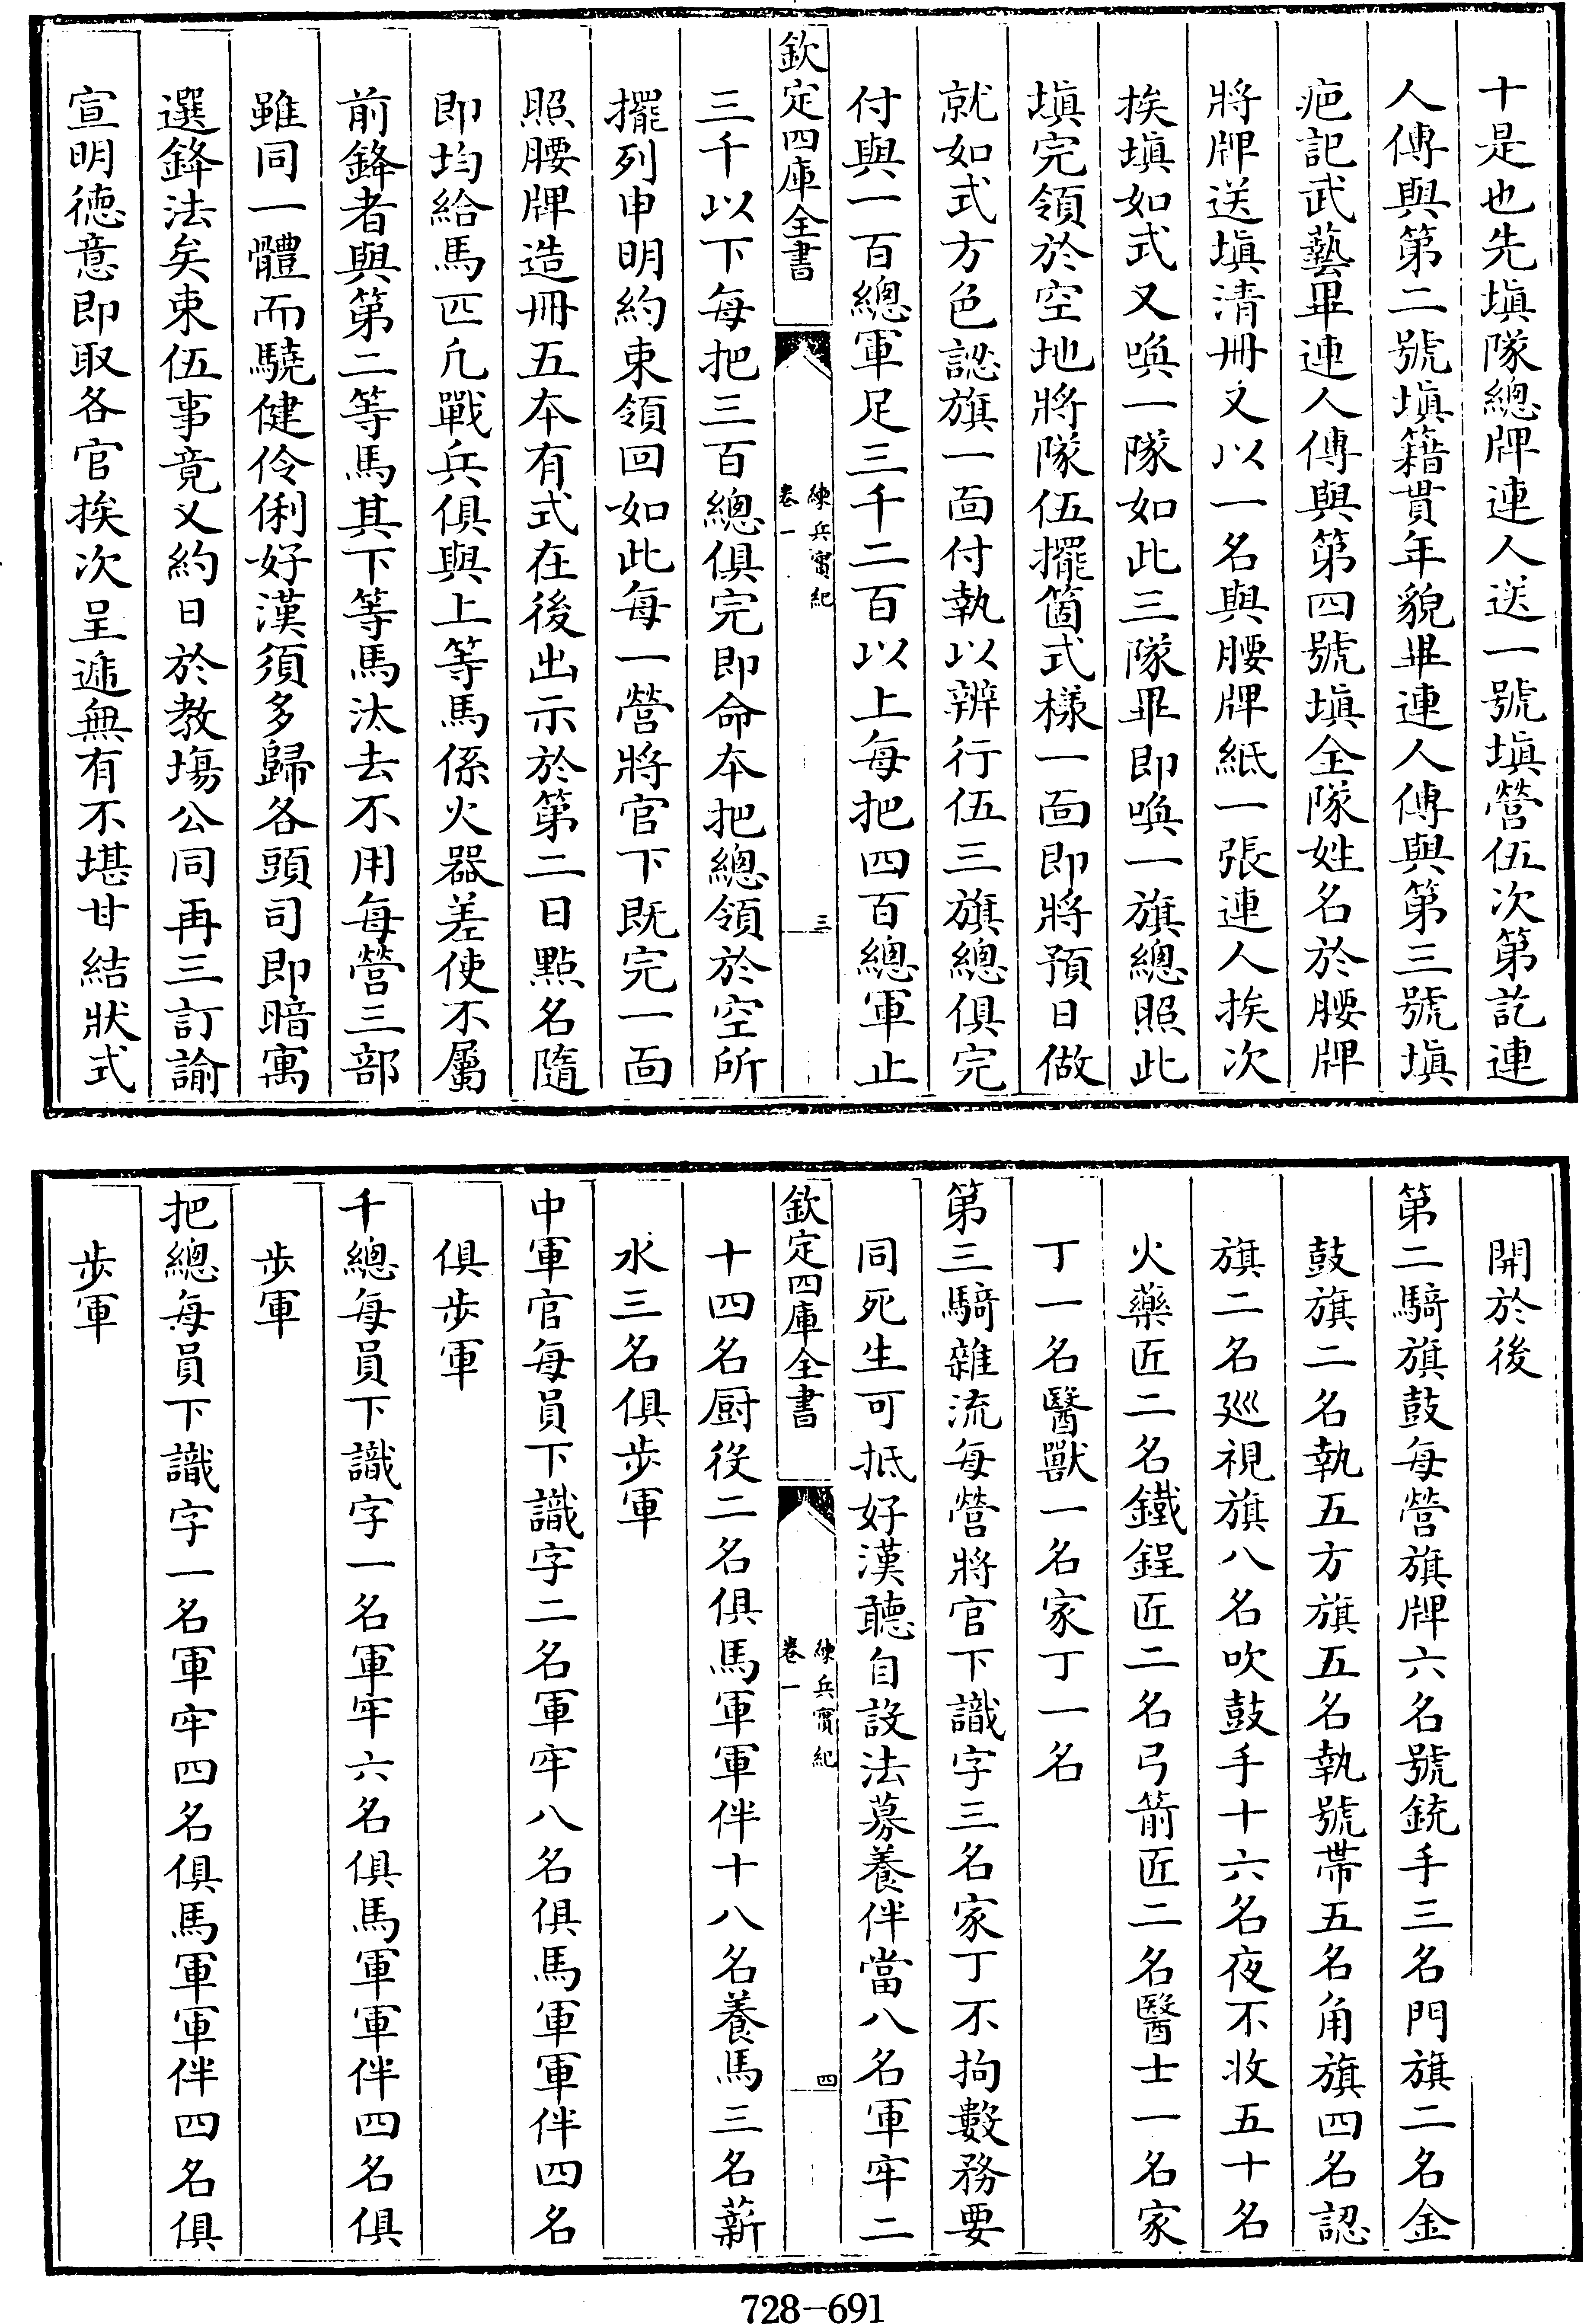 十是也先塡隊總牌連人送一號塡營伍次第訖連
人傳與第二號塡籍貫年貌畢連人傳與第三號塡
疤記武藝畢連人傳與第四號塡全隊姓名於腰牌
將牌送塡清冊又以一名與腰牌紙一張連人挨次
挨塡如式又喚一隊如此三隊畢即喚一旗總照此
塡完領於空地將隊伍擺箇式樣一面即將預日做
就如式方色認旗一面付執以辨行伍三旗總俱完
付與一百總軍足三千二百以上每把四百總軍止
欽定四庫全書
練兵實紀
卷一
三
三千以下每把三百總俱完即命本把總領於空所
擺列申明約束領回如此每一營將官下既完一面
照腰牌造冊五本有式在後出示於第二日點名隨
即均給馬匹凡戰兵俱與上等馬係火器差使不屬
前鋒者與第二等馬其下等馬汰去不用每營三部
雖同一體而驍健伶俐好漢須多歸各頭司即暗寓
選鋒法矣束伍事竟又約日於教塲公同再三訂諭
宣明德意即取各官挨次呈遞無有不堪甘結狀式
開於後
第二騎旗鼓每營旗牌六名號銃手三名門旗二名金
鼓旗二名執五方旗五名執號帶五名角旗四名認
旗二名廵視旗八名吹鼓手十六名夜不收五十名
火藥匠二名鐵鋥匠二名弓箭匠二名醫士一名家
丁一名醫獸一名家丁一名
第三騎雜流每營將官下識字三名家丁不拘數務要
同死生可抵好漢聽自設法募養伴當八名軍牢二
欽定四庫全書
練兵實紀
卷一
四
十四名厨役二名俱馬軍軍伴十八名養馬三名薪
水三名俱步軍
中軍官每員下識字二名軍牢八名俱馬軍軍伴四名
俱步軍
千總每員下識字一名軍牢六名俱馬軍軍伴四名俱
步軍
把總每員下識字一名軍牢四名俱馬軍軍伴四名俱
步軍
728-691